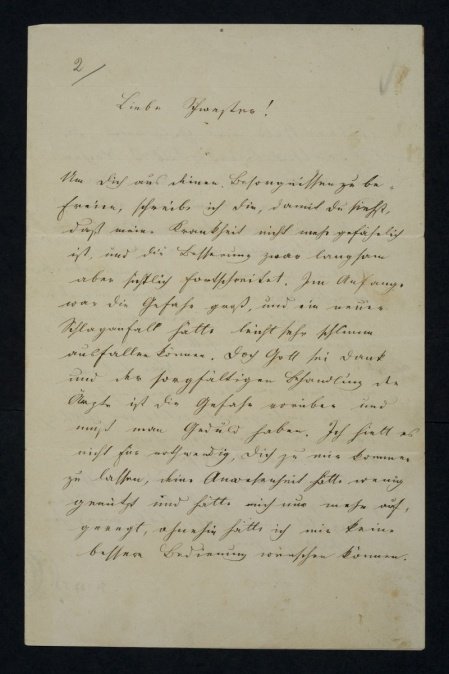 2/
Liebe Schwester!
Um Dich aus deinen Besorgnissen zu be-
freien, schreibe ich Dir, damit du siehst,
daß meine Krankheit nicht mehr gefährlich
ist, und die Besserung zwar langsam
aber sichtlich fortschreitet. Im Anfange
war die Gefahr groß, und ein neuer
Schlaganfall hätte leicht sehr schlimm
ausfallen können. Doch Gott sei dank
und der sorgfältigen Behandlung der
Ärzte ist die Gefahr vorüber und
muß man Geduld haben. Ich hielt es
nicht für nothwendig, Dich zu mir kommen
zu lassen, deine Anwesenheit hätte wenig
genützt und hätte mich nur mehr auf-
geregt, ohnehin hätte ich mir keine
bessere Bedienung wünschen können.